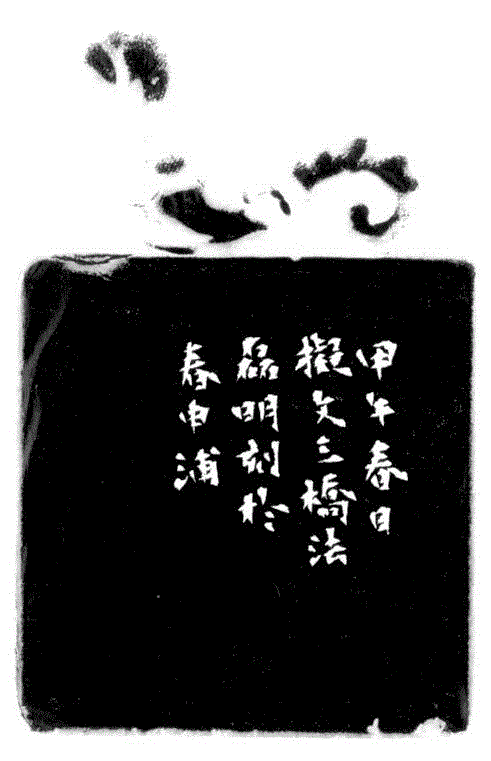 甲午春日
擬文三橋法
磊明刻於
春申浦